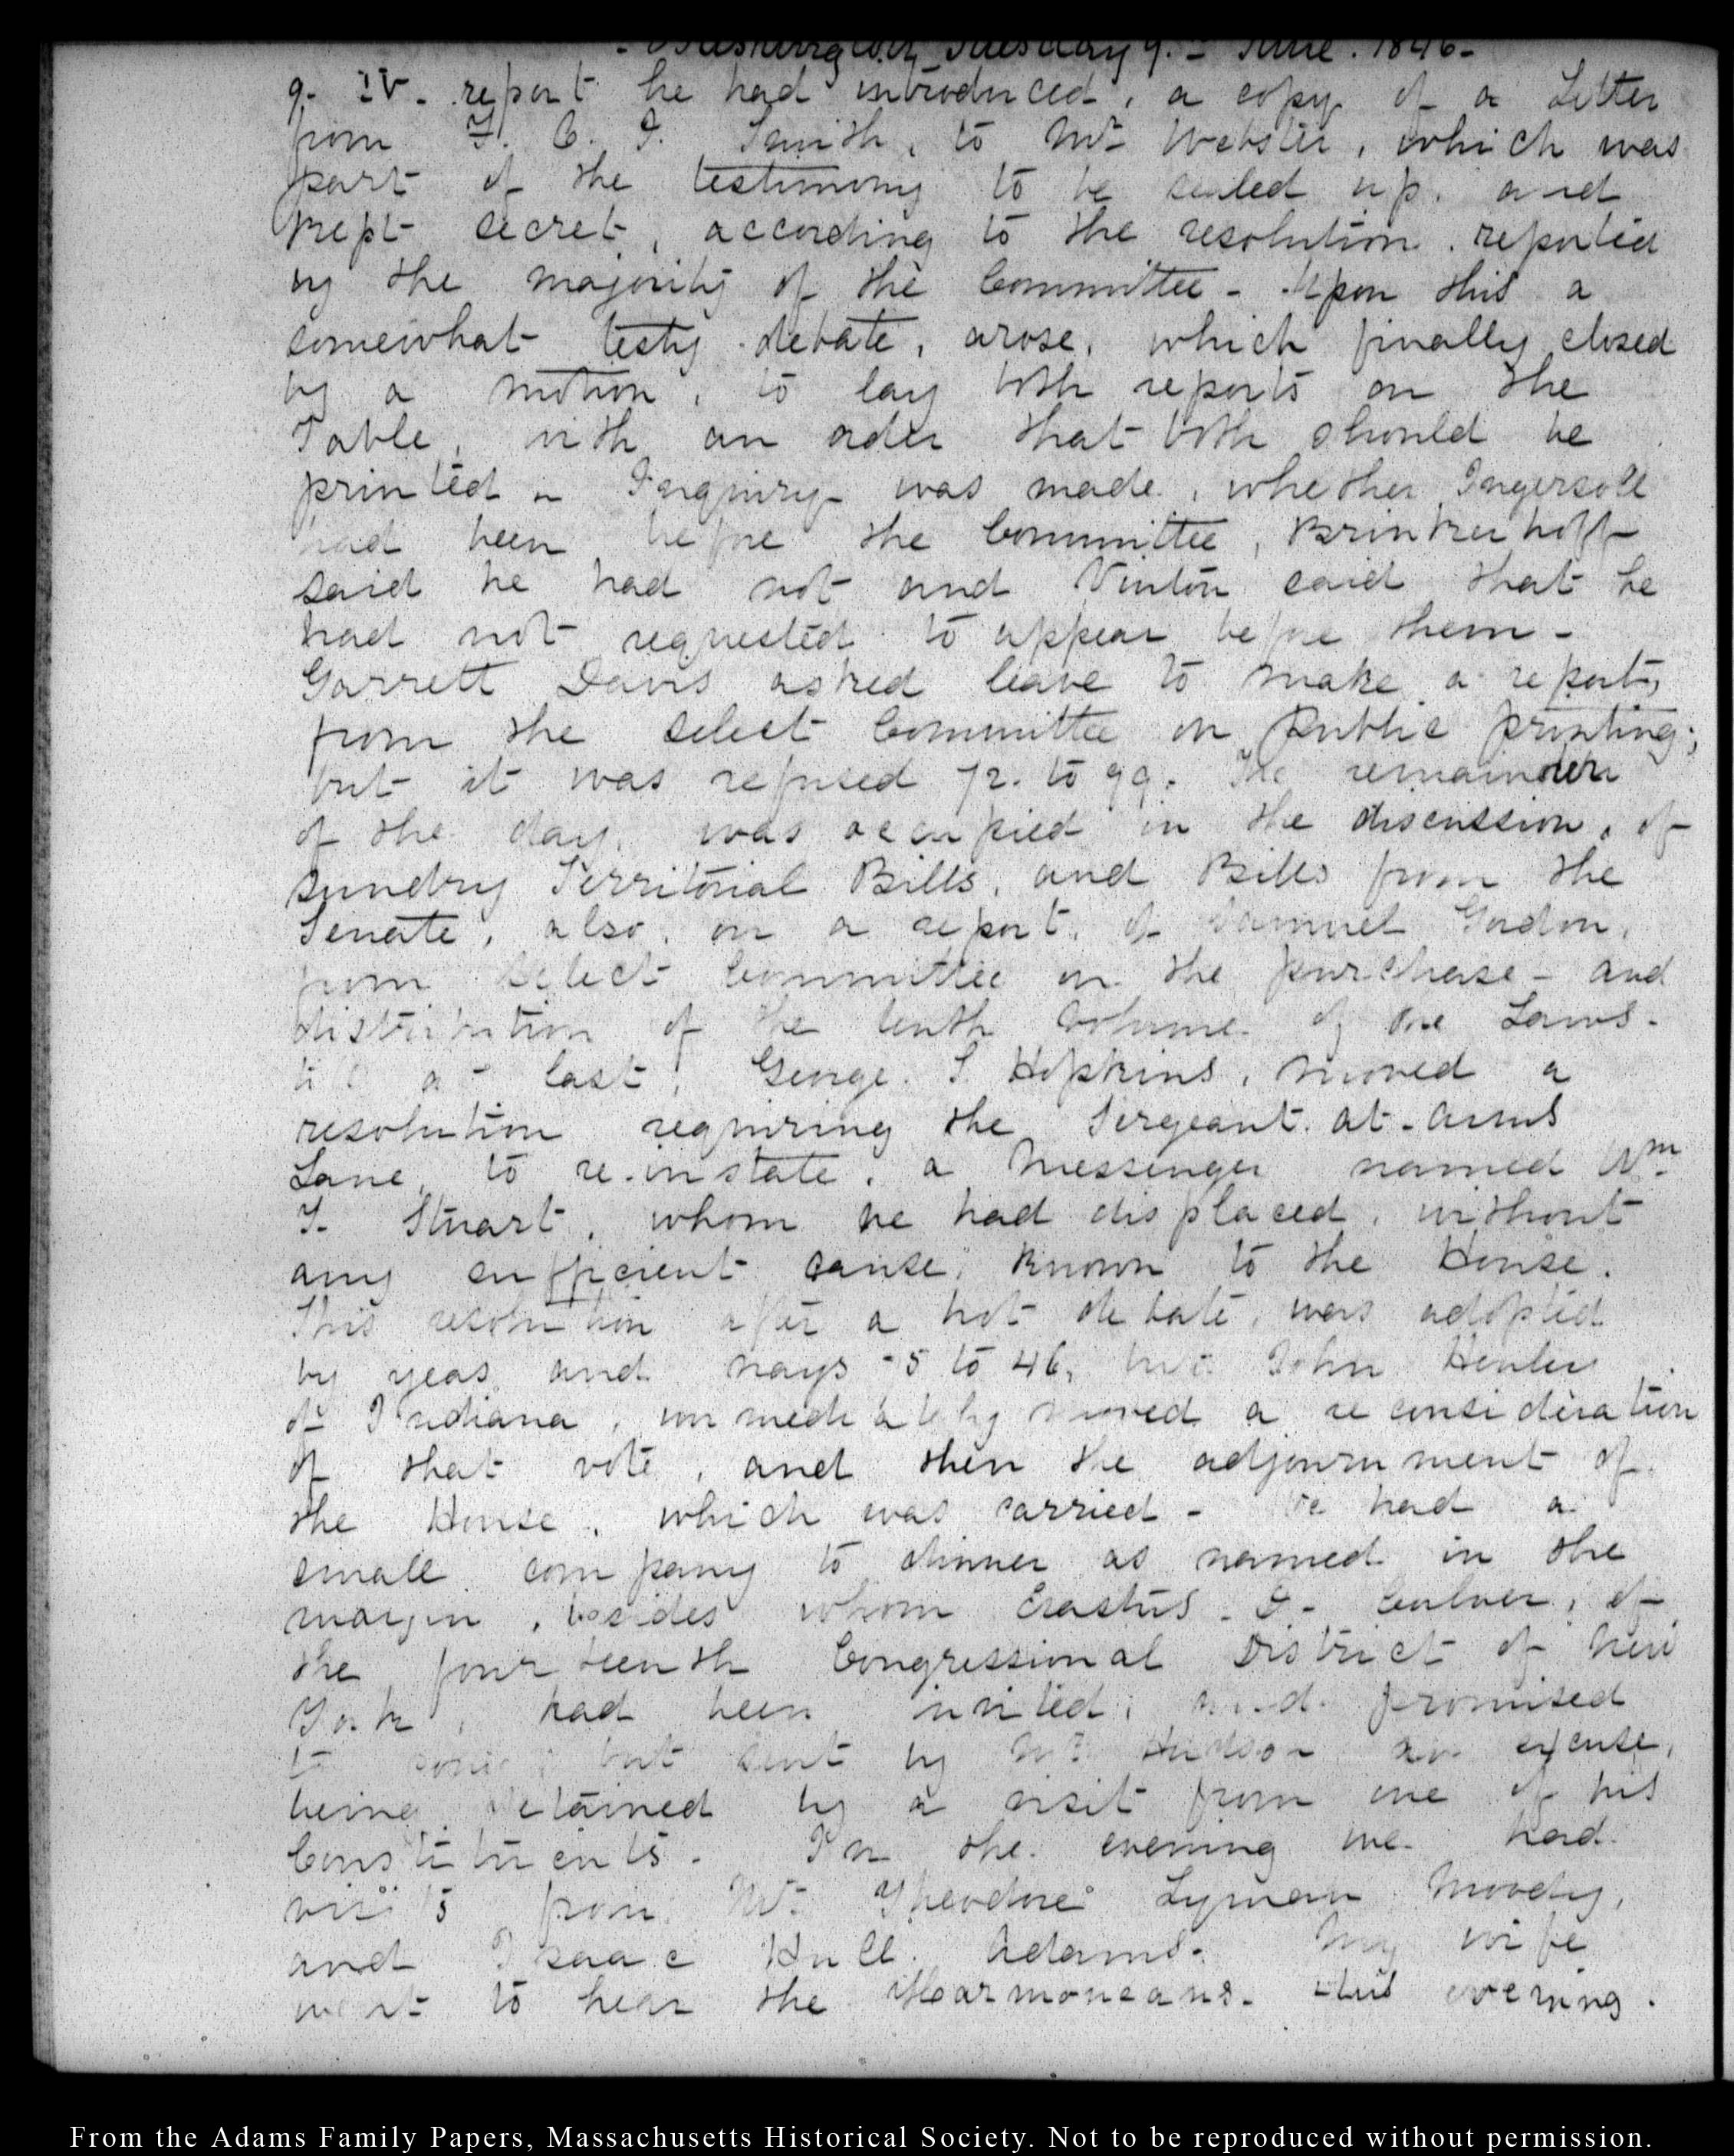 - Washington Tuesday 9. June. 1846 -
9. IV. report he had introduced, a copy of a Letter
from F. O. J. Smith, to Mr Webster, which was
part of the testimony to be sealed up. and
kept secret, according to the resolution. reported
by the majority of the Committee - Upon this a
somewhat testy debate, arose, which finally closed
by a motion, to lay both reports on the
Table, with an order that both should be
printed - Inquiry was made, whether Ingersoll
had been before the Committee, Brinkerhoff
said he had not and Vinton said that he
had not requested to appear before them -
Garrett Davis asked leave to make a report,
from the select Committee on Public printing;
but it was refused 72. to 99. The remainder
of the day. was occupied in the discussion, of
sundry Territorial Bills, and Bills from the
Senate, also, on a report, of Samuel Gordon,
from select Committee on the purchase - and
distribution of the tenth Volume of the Laws.
at last, George. S. Hopkins, moved a
resolution requiring the Sergeant. at-arms
Lane, to re-instate, a Messenger named Wm
J. Stuart, whom he had displaced, without
any sufficient cause, known to the House.
This resolution after a hot debate, was adopted
by yeas and nays 5 to 46, but John Henley
of Indiana, immediately moved a reconsideration
of that vote, and then the adjournment of
the House, which was carried - We had a
small company to dinner as named in the
margin, besides whom Erastus. D. Culver, of
the fourteenth Congressional District of New
York, had been invited; and promised
to come; but sent by Mr Hudson an excuse,
being detained by a visit from one of his
Constituents. In the evening we had
visits from Mr Theodore Lyman Moody,
and Isaac Hull Adams. My wife
went to hear the Harmoneans. this evening.
From the Adams Family Papers, Massachusetts Historical Society. Not to be reproduced without permission.